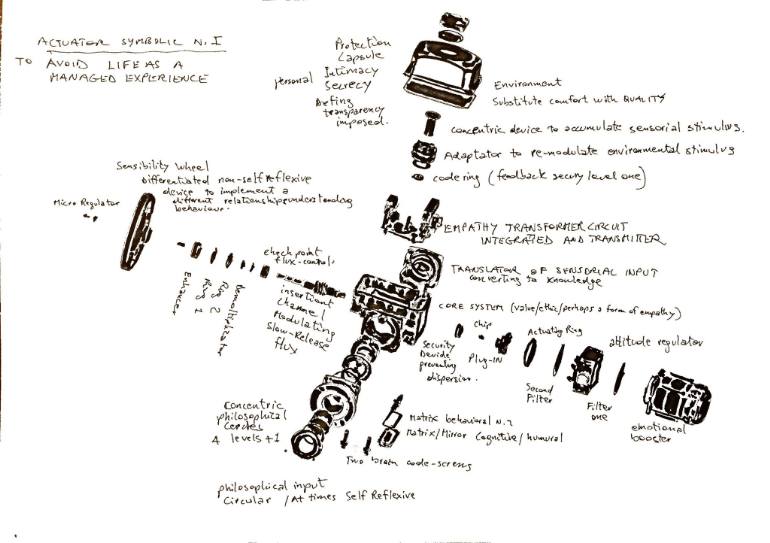 ACTUATOR SYMBOLIC N. I
TO AVOID LIFE AS A
MANAGED EXPERIENCE
Protection
Capsule
personal Intimacy
Secrecy
Defing
transparency
imposed.
Environment
Substitute comfort with QUALITY
concentric device to accumulate sensorial stimulus.
Adaptator to re-modulate environmental stimulus
code ring (feedback secury level one)
EMPATHY TRANSFORMER CIRCUIT
INTEGRATED AND TRANSMITTER
TRANSLATOR OF SENSORIAL INPUT
converting to knowledge
CORE SYSTEM (value/ethic/perhaps a form of empathy)
Sensibility Wheel
Differentiated non-self Reflexive
device to implement a
different relationship/understanding
behaviour.
Micro Regulator
Enhancer
Ring 1
Ring 2
check point
flux-control
insertiont
Channel
Modulating
Slow-Release
flux
Security
Devide
prevending
dispersion.
Chip
Plug-IN
Actuating Ring
Second
Filter
attitude regulator
Filter
one
emotional
booster
Concentric
philosophical
Cercles
4 levels + 1
Matrix behavioral N. 2
Matrix/Mirror Cognitive/humoral
Two brain code-screws
philosophical input
Circular / At times Self Reflexive